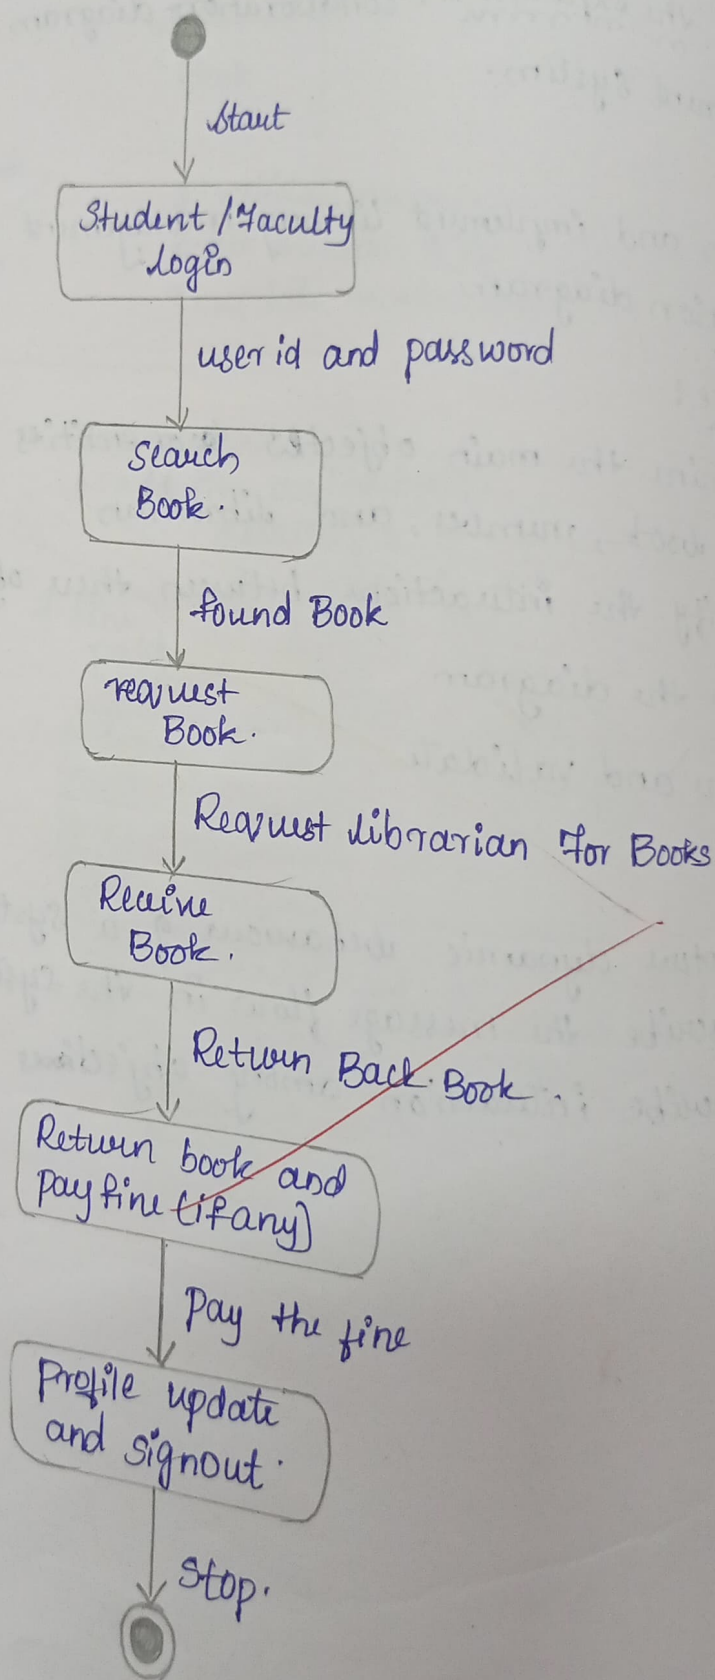 Start
Student/Faculty
login
user id and password
Search
Book.
found Book
request
Book.
Request librarian For Books
Receive
Book.
Return Back Book.
Return book and
Pay fine (if any)
Pay the fine
Profile update
and signout.
Stop.